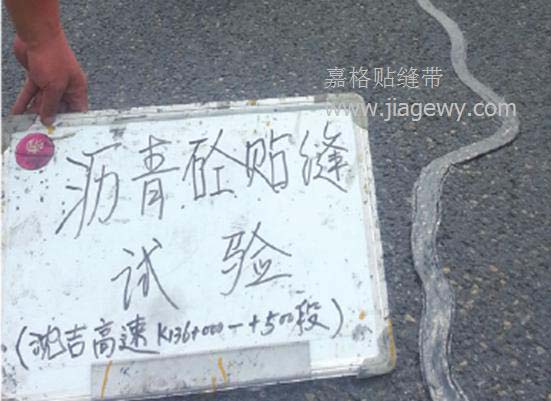 嘉格贴缝带
www.jiagewy.com
沥青砼贴缝
试验
(沈吉高速K136+000-+500段)